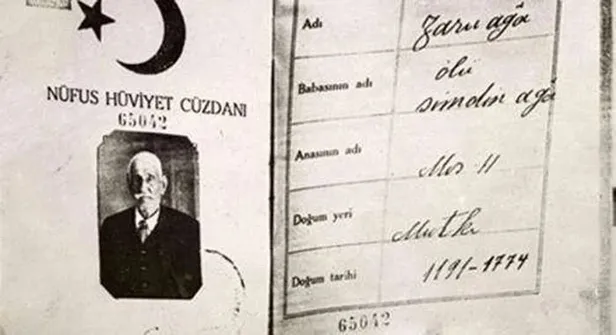 NÜFUS HÜVİYET CÜZDANI
65042
Adı
Zaru ağa
Babasının adı
ölü
simdin ağa
Anasının adı
Doğum yeri
Mutki
Doğum tarihi
1191-1774
65042